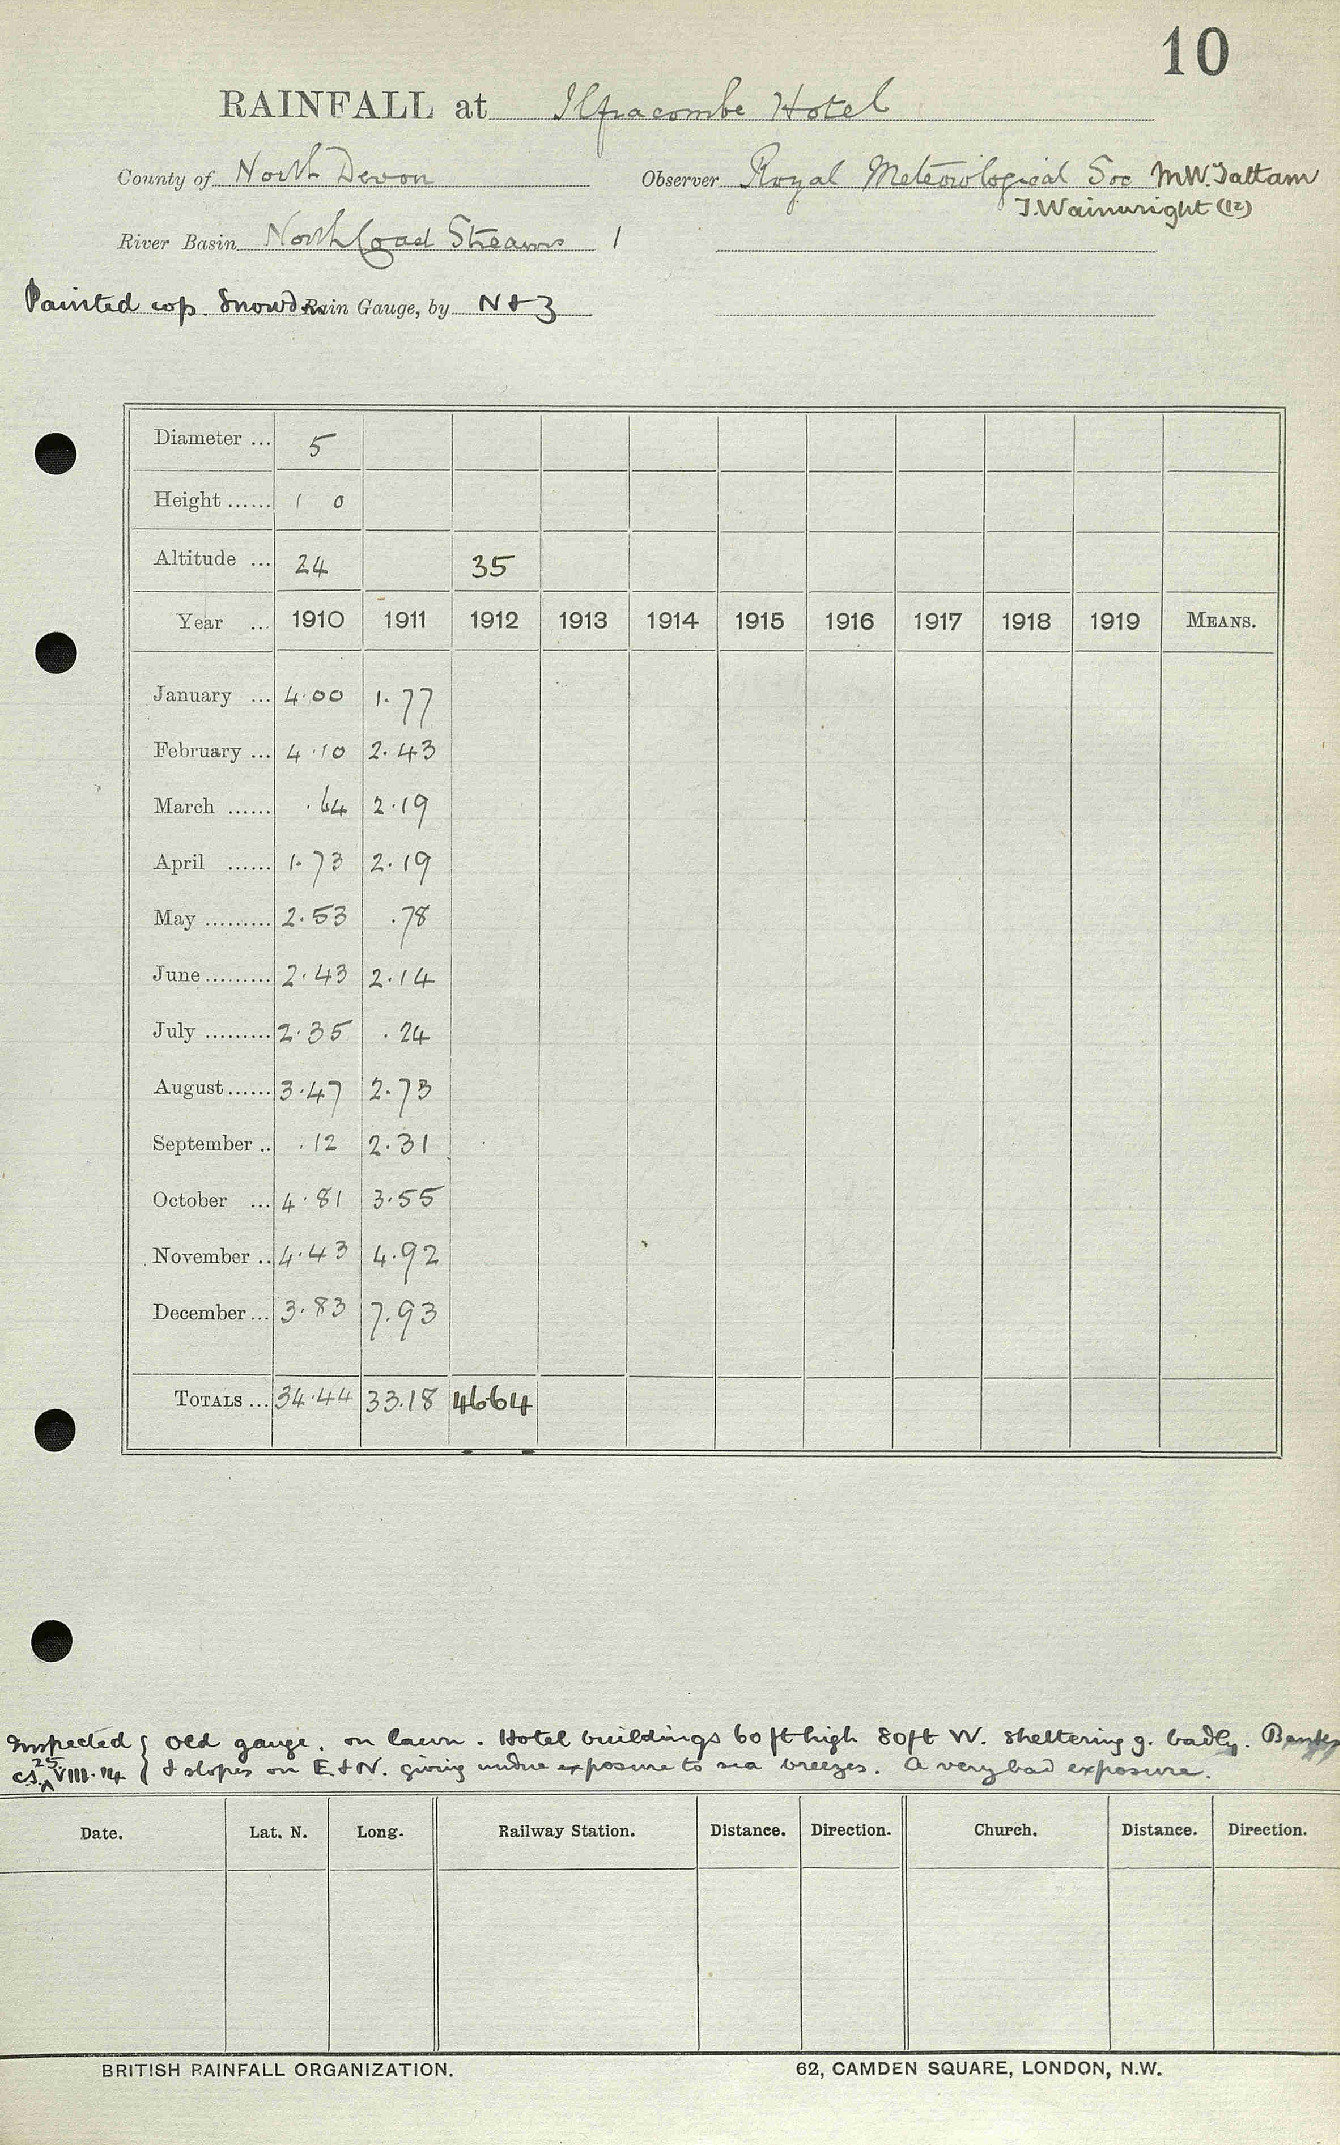 10
RAINFALL at Ilfracombe Hotel
County of North Devon Observer Royal Meteorological Soc M.W. Tattam
J. Wainwright (12)
River Basin North Coast Streams 1
Painted cop. Snowdn Rain Gauge, by N & Z
Diameter ... 5
Height ...... 1 0
Altitude ... 24 35
Year ... 1910 1911 1912 1913 1914 1915 1916 1917 1918 1919 MEANS.
January ... 4.00 1.77
February ... 4.10 2.43
March ...... .64 2.19
April ...... 1.73 2.19
May ......... 2.53 .78
June ......... 2.43 2.14
July ......... 2.35 .24
August ...... 3.47 2.73
September .. .12 2.31
October ... 4.81 3.55
November .. 4.43 4.92
December ... 3.83 7.93
TOTALS ... 34.44 33.18 46.64
Inspected { Old gauge. on lawn. Hotel buildings 60 ft high 80ft W. sheltering g. badly. Banks
CS. 25 VIII.14 { & slopes on E. & N. giving undue exposure to sea breezes. A very bad exposure.
Date. Lat. N. Long. Railway Station. Distance. Direction. Church. Distance. Direction.
BRITISH RAINFALL ORGANIZATION. 62, CAMDEN SQUARE, LONDON, N.W.